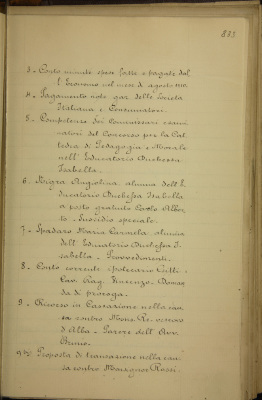 3 - Conto minute spese fatte e pagate dal
l'Economo nel mese di agosto
4 - Pagamento note gaz della Società
Italiana e Consumatori.
5 - Competenze dei Commissari esami
natori del Concorso per la Cat
tedra di Pedagogia e Morale
nell' Educatorio Duchessa
Isabella.
6 - Angiolina, alunna dell' E
ducatorio Duchessa Isabella
a posto gratuito Carlo Alber
to. Sussidio speciale.
7 - Spadaro Maria Carmela, alunna
dell' Educatorio Duchessa I
sabella. Provvedimenti.
8 - Conto corrente ipotecario
Cav. Rag. Vincenzo. Doman
da di proroga.
9 - Ricorso in Cassazione nella cau
sa contro Mons. Re, vescovo
d'Alba. Parere dell' Avv.
Bruno.
Proposta di transazione nella cau
sa contro Monsignor Rossi.